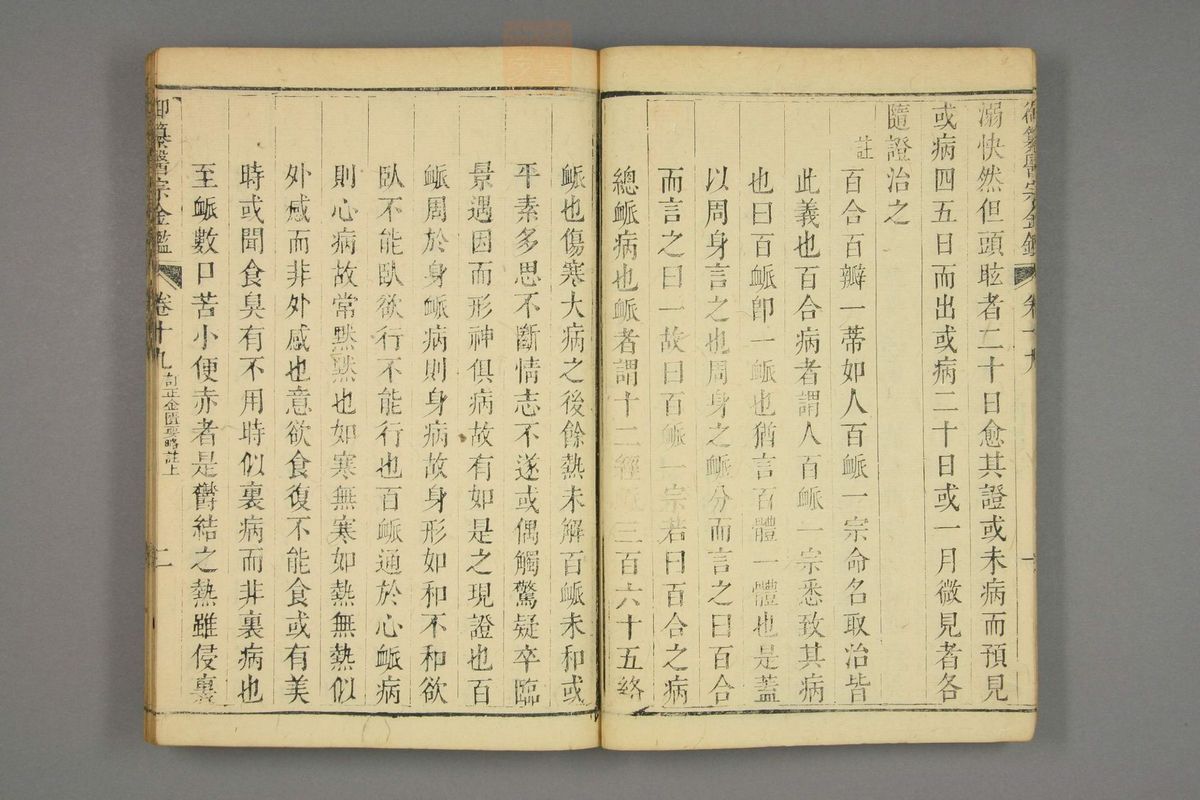 溺快然但頭眩者二十日愈其證或未病而預見
或病四五日而出或病二十日或一月微見者各
隨證治之
註
百合百瓣一蒂如人百䘑一宗命名取治皆
此義也百合病者謂人百䘑一宗悉致其病
也曰百䘑卽一䘑也猶言百體一體也是蓋
以周身言之也周身之䘑分而言之曰百合
而言之曰一故曰百䘑一宗若曰百合之病
總䘑病也䘑者謂十二經䘑三百六十五絡
䘑也傷寒大病之後餘熱未解百䘑未和或
平素多思不斷情志不遂或偶觸驚疑卒臨
景遇因而形神俱病故有如是之現證也百
䘑周於身䘑病則身病故身形如和不和欲
臥不能臥欲行不能行也百䘑通於心䘑病
則心病故常默默也如寒無寒如熱無熱似
外感而非外感也意欲食復不能食或有美
時或聞食臭有不用時似裏病而非裏病也
至䘑數口苦小便赤者是欝結之熱雖侵裏
御纂醫宗金鑑
卷十九
訂正金匱要略註上
二